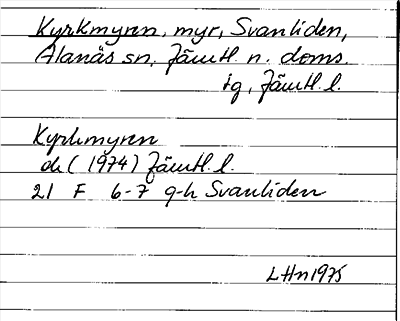 Kyrkmyren, myr, Svanliden,
Alanäs sn, Jämtl. n. doms.
tg, Jämtl. l.
Kyrkmyren
dk (1974) Jämtl. l.
21 F 6-7 g-h Svanliden
LHn 1975